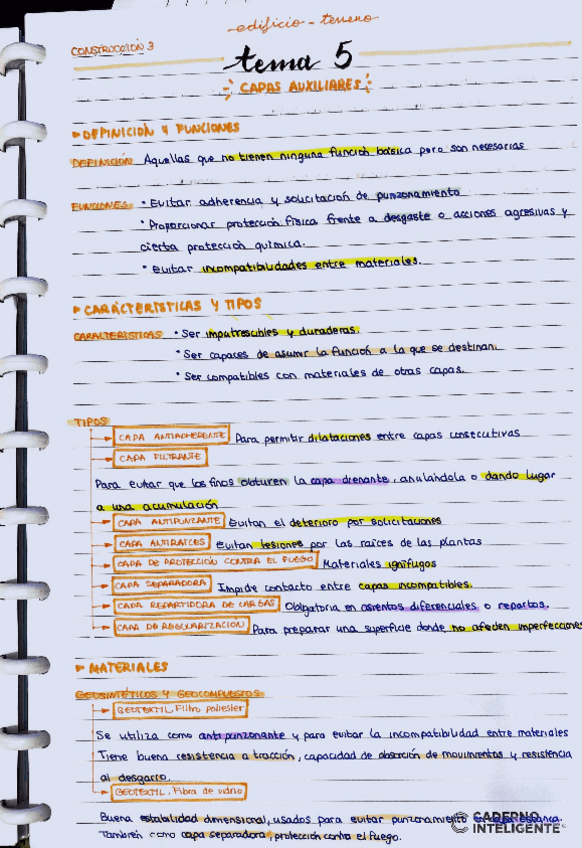 edificio - terreno
CONSTRUCCIÓN 3
tema 5
CAPAS AUXILIARES
DEFINICIÓN Y FUNCIONES
DEFINICIÓN Aquellas que no tienen ninguna función básica pero son necesarias
FUNCIONES • Evitar adherencia y solicitación de punzonamiento
• Proporcionar protección física frente a desgaste o acciones agresivas y
cierta protección química.
• Evitar incompatibilidades entre materiales.
CARACTERÍSTICAS Y TIPOS
CARACTERÍSTICAS • Ser imputrescibles y duraderas.
• Ser capaces de asumir la función a la que se destinan.
• Ser compatibles con materiales de otras capas.
TIPOS
CAPA ANTIADHERENTE Para permitir dilataciones entre capas consecutivas
CAPA FILTRANTE
Para evitar que los finos obturen la capa drenante, anulándola o dando lugar
a una acumulación
CAPA ANTIPUNZANTE Evitan el deterioro por solicitaciones
CAPA ANTIRAÍCES Evitan lesiones por las raíces de las plantas
CAPA DE PROTECCIÓN CONTRA EL FUEGO Materiales ignífugos
CAPA SEPARADORA Impide contacto entre capas incompatibles.
CAPA REPARTIDORA DE CARGAS Obligatoria en asientos diferenciales o repartos.
CAPA DE REGULARIZACIÓN Para preparar una superficie donde no afecten imperfecciones
MATERIALES
GEOSINTÉTICOS Y GEOCOMPUESTOS
GEOTEXTIL, Filtro poliester
Se utiliza como antipunzonante y para evitar la incompatibilidad entre materiales
Tiene buena resistencia a tracción, capacidad de absorción de movimientos y resistencia
al desgarro.
GEOTEXTIL, Fibra de vidrio
Buena estabilidad dimensional, usados para evitar punzonamiento
También como capa separadora, protección contra el fuego.
CADERNO
INTELIGENTE